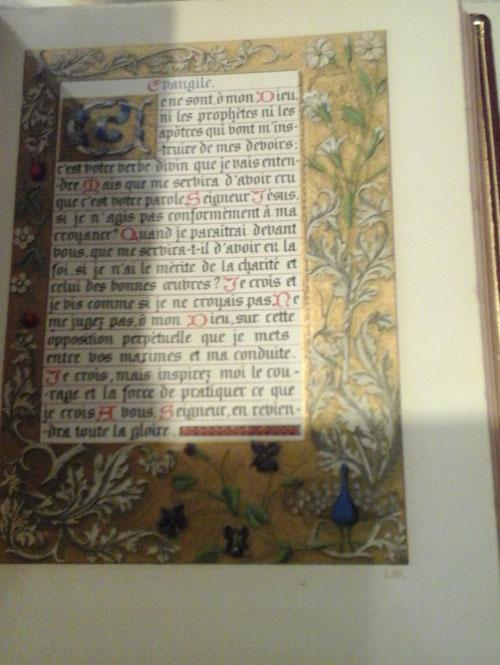 Evangile.
Ce ne sont, ô mon Dieu,
ni les prophètes ni les
apôtres qui vont m'ins-
truire de mes devoirs:
c'est votre verbe divin que je vais enten-
dre. Mais que me servira d'avoir cru
que c'est votre parole Seigneur Jésus,
si je n'agis pas conformément à ma
croyance? Quand je paraîtrai devant
vous, que me servira-t-il d'avoir eu la
foi, si je n'ai le mérite de la charité et
celui des bonnes œuvres? Je crois et
je vis comme si je ne croyais pas. Ne
me jugez pas, ô mon Dieu, sur cette
opposition perpétuelle que je mets
entre vos maximes et ma conduite.
Je crois, mais inspirez moi le cou-
-rage et la force de pratiquer ce que
je crois A vous, Seigneur, en revien-
-dra toute la gloire.